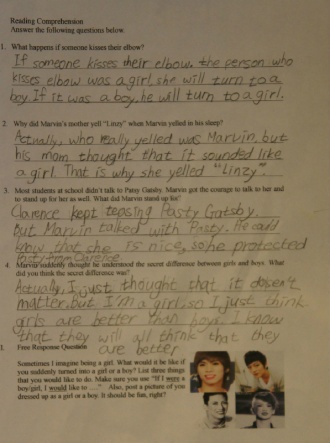 Reading Comprehension
Answer the following questions below
1. What happens if someone kisses their elbow?
If someone kisses their elbow, the person who
kisses elbow was a girl, she will turn to a
boy. If it was a boy, he will turn to a girl.
2. Why did Marvin's mother yell "Linzy" when Marvin yelled in his sleep?
Actually, who really yelled was Marvin, but
his mom thought that it sounded like
a girl. That is why she yelled "Linzy".
3. Most students at school didn't talk to Patsy Gatsby. Marvin got the courage to talk to her and
to stand up for her as well. What did Marvin stand up for?
Clarence kept teasing Pasty Gatsby.
But Marvin talked with Pasty. He could
know that she is nice, so he protected
Pasty from Clarence.
4. Marvin suddenly thought he understood the secret difference between girls and boys. What
did you think the secret difference was?
Actually, I just thought that it doesn't
matter, but I'm a girl, so I just think
girls are better than boys. I know
that they will all think that they
are better
Free Response Question
Sometimes I imagine being a girl. What would it be like if
you suddenly turned into a girl or a boy? List three things
that you would like to do. Make sure you use "If I were a
boy/girl, I would like to ...." Also, post a picture of you
dressed up as a girl or a boy. It should be fun, right?